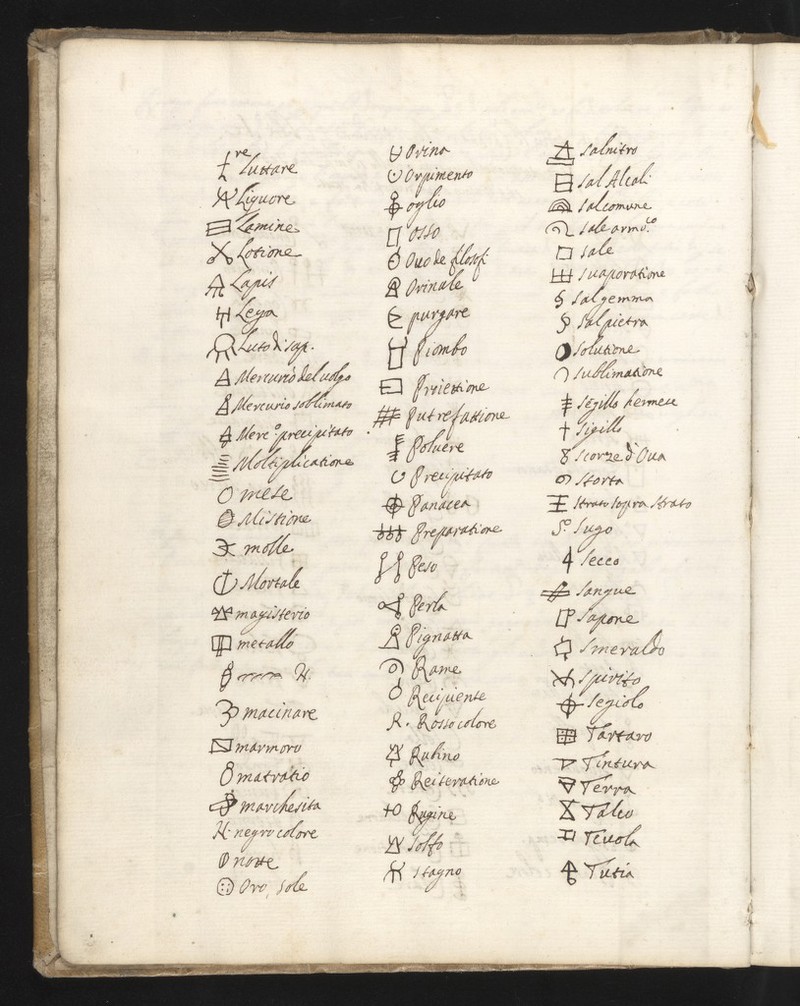 re
Luttare
Liquore
Lamine
Lotione
Lapis
Lega
Luto di sap.
Mercurio del uolgo
Mercurio sollimato
Merc.o precipitato
Moltiplicatione
mese
Mistione
molle
Mortale
magisterio
metallo
N.
macinare
marmoro
matratio
marchesita
N. negro colore
notte
Oro, sole
Orina
Orpimento
oglio
osso
Ouo de filosf.
Orinale
purgare
Piombo
Proiettione
Putrefattione
Poluere
Precipitato
Panacea
Preparatione
Peso
Perla
Pignatta
Rame
Recipiente
R. Rosso colore
Rubino
Reiteratione
Rugine
Solfo
stagno
Salnitro
Sal Alcali
Salcomune
Sale armo.co
Sale
Suaporatione
Salgemma
Salpietra
Solutione
Sublimatione
Segillo
Sigillo
Scorze d'Oua
Storta
Strato sopra strato
S.o Sugo
Secco
Sangue
Sapone
Smeraldo
Spirito
Segiolo
Tartaro
Tintura
Terra
Talco
Tevola
Tutia